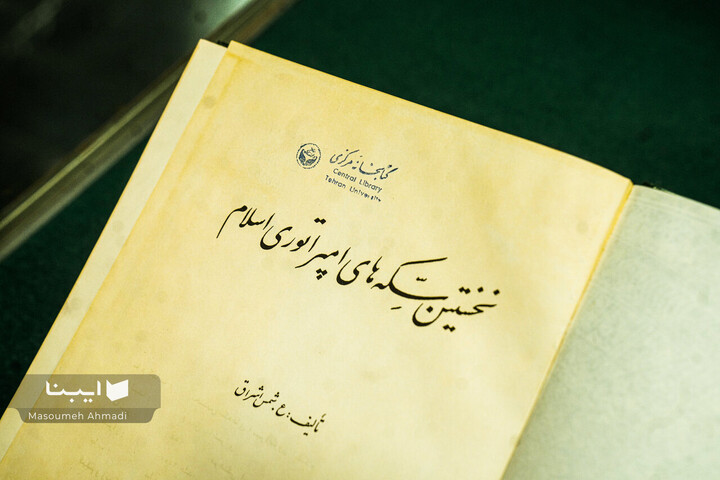 کتابخانه مرکزی
Central Library
Tehran University
نخستین سکّه‌های امپراتوری اسلام
تألیف: ع. شمس اشراق
ایبنا
Masoumeh Ahmadi